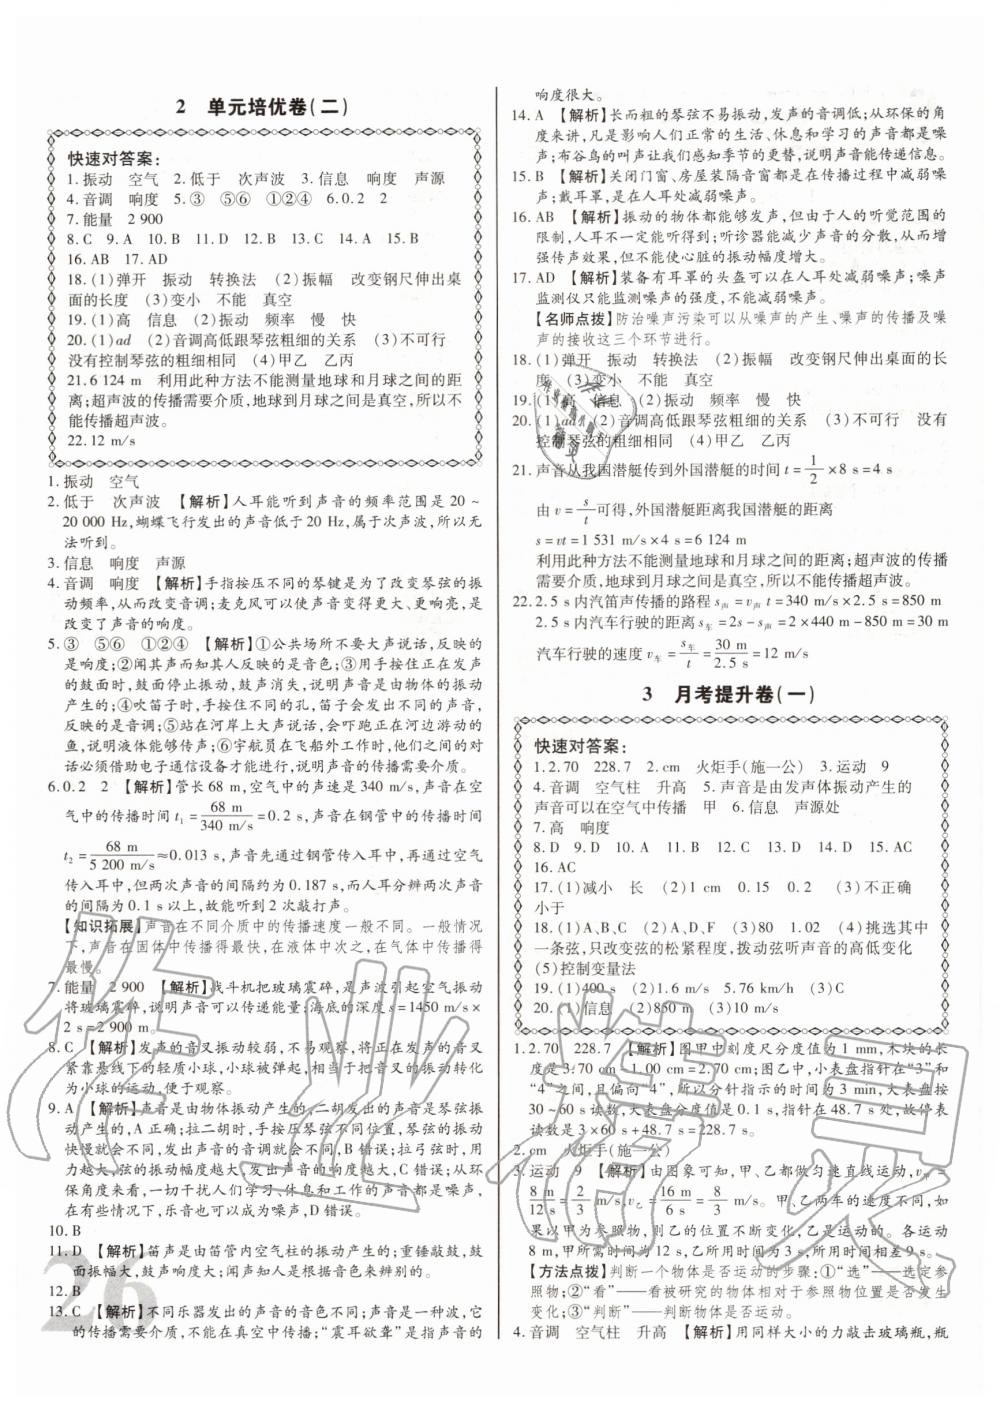 2 单元培优卷(二)
快速对答案:
1.振动 空气 2.低于 次声波 3.信息 响度 声源
4.音调 响度 5.③ ⑤⑥ ①②④ 6.0.2 2
7.能量 2 900
8.C 9.A 10.B 11.D 12.B 13.C 14.A 15.B
16.AB 17.AD
18.(1)弹开 振动 转换法 (2)振幅 改变钢尺伸出桌
面的长度 (3)变小 不能 真空
19.(1)高 信息 (2)振动 频率 慢 快
20.(1)ad (2)音调高低跟琴弦粗细的关系 (3)不可行
没有控制琴弦的粗细相同 (4)甲乙 乙丙
21.6 124 m 利用此种方法不能测量地球和月球之间的距
离;超声波的传播需要介质,地球到月球之间是真空,所以不
能传播超声波。
22.12 m/s
1.振动 空气
2.低于 次声波 【解析】人耳能听到声音的频率范围是 20 ~
20 000 Hz,蝴蝶飞行发出的声音低于 20 Hz,属于次声波,所以无
法听到。
3.信息 响度 声源
4.音调 响度 【解析】手指按压不同的琴键是为了改变琴弦的振
动频率,从而改变音调;麦克风可以使声音变得更大、更响亮,是
改变了声音的响度。
5.③ ⑤⑥ ①②④ 【解析】①公共场所不要大声说话,反映的
是响度;②闻其声而知其人反映的是音色;③用手按住正在发声
的鼓面时,鼓面停止振动,鼓声消失,说明声音是由物体的振动
产生的;④吹笛子时,手按住不同的孔,笛子会发出不同的声音,
反映的是音调;⑤站在河岸上大声说话,会吓跑正在河边游动的
鱼,说明液体能够传声;⑥宇航员在飞船外工作时,他们之间的对
话必须借助电子通信设备才能进行,说明声音的传播需要介质。
6.0.2 2 【解析】管长 68 m,空气中的声速是 340 m/s,声音在空
气中的传播时间 t₁ = 68 m / 340 m/s = 0.2 s,声音在钢管中的传播时间
t₂ = 68 m / 5 200 m/s ≈0.013 s,声音先通过钢管传入耳中,再通过空气
传入耳中,但两次声音的间隔约为 0.187 s,而人耳分辨两次声音
的间隔为 0.1 s以上,故能听到 2 次敲打声。
【知识拓展】声音在不同介质中的传播速度一般不同。一般情况
下,声音在固体中传播得最快,在液体中次之,在气体中传播得
最慢。
7.能量 2 900 【解析】战斗机把玻璃震碎,是声波引起空气振动
将玻璃震碎,说明声音可以传递能量;海底的深度 s=1450 m/s ×
2 s=2 900 m。
8.C 【解析】发声的音叉振动较弱,不易观察,将正在发声的音叉
紧靠悬线下的轻质小球,小球被弹开,是将音叉的振动转化
为小球的运动,便于观察。
9.A 【解析】声音是由物体振动产生的,二胡发出的声音是琴弦振
动产生的,A 正确;拉二胡时,手指按压琴弦不同位置,琴弦振动
快慢就会不同,发出声音的音调就会不同,B 错误;拉弓弦时,用
力越大,弦的振动幅度越大,发出声音的响度越大,C 错误;从环
保角度看,一切干扰人们学习、休息和工作的声音都是噪声,
在有些情况下,乐音也可以成为噪声,D 错误。
10.B
11.D 【解析】笛声是由笛管内空气柱的振动产生的;重锤敲鼓,鼓
面振幅大,鼓声响度大;闻声知人是根据声音的音色来辨别的。
12.B
13.C 【解析】不同乐器发出的声音的音色不同;声音是一种波,它
的传播需要介质,不能在真空中传播;“震耳欲聋”是指声音的
26
响度很大。
14.A 【解析】长而粗的琴弦不易振动,发声的音调低;从环保的角
度来讲,凡是影响人们正常的生活、休息和学习的声音都是噪
声;布谷鸟的叫声让人们感知季节的更替,说明声音能传递信息。
15.B 【解析】关闭门窗、房屋装隔音窗都是在传播过程中减弱噪
声;戴耳罩,是在人耳处减弱噪声。
16.AB 【解析】振动的物体都能够发声,但由于人的听觉范围的
限制,人耳不一定能听到;听诊器能减少声音的分散,从而增
强传声效果,但不能使心脏的振动幅度增大。
17.AD 【解析】装备有耳罩的头盔可以在人耳处减弱噪声;噪声
监测仪只能监测噪声的强度,不能减弱噪声。
【名师点拨】防治噪声污染可以从噪声的产生、噪声的传播及噪
声的接收这三个环节进行。
18.(1)弹开 振动 转换法 (2)振幅 改变钢尺伸出桌面的长
度 (3)变小 不能 真空
19.(1)高 信息 (2)振动 频率 慢 快
20.(1)ad (2)音调高低跟琴弦粗细的关系 (3)不可行 没有
控制琴弦的粗细相同 (4)甲乙 乙丙
21.声音从我国潜艇传到外国潜艇的时间 t = 1/2 ×8 s=4 s
由 v = s/t 可得,外国潜艇距离我国潜艇的距离
s=vt=1 531 m/s×4 s=6 124 m
利用此种方法不能测量地球和月球之间的距离;超声波的传播
需要介质,地球到月球之间是真空,所以不能传播超声波。
22.2.5 s内汽笛声传播的路程 s声=v声 t=340 m/s×2.5 s=850 m
2.5 s内汽车行驶的距离 s车=2s-s声=2×440 m-850 m=30 m
汽车行驶的速度 v车 = s车/t = 30 m / 2.5 s =12 m/s
3 月考提升卷(一)
快速对答案:
1.2.70 228.7 2.cm 火炬手(施一公) 3.运动 9
4.音调 空气柱 升高 5.声音是由发声体振动产生的
声音可以在空气中传播 甲 6.信息 声源处
7.高 响度
8.D 9.D 10.A 11.C 12.D 13.D 14.D 15.AC
16.AC
17.(1)减小 长 (2)1 cm 0.15 0.2 (3)不正确
小于
18.(1)A、B、C (2)A、D、F (3)80 1.02 (4)挑选其中
一条弦,只改变弦的松紧程度,拨动弦听声音的高低变化
(5)控制变量法
19.(1)400 s (2)1.6 m/s 5.76 km/h (3)C
20.(1)信息 (2)850 m (3)10 m/s
1.2.70 228.7 【解析】图甲中刻度尺分度值为 1 mm,木块的长
度为 3.70 cm-1.00 cm=2.70 cm;图乙中,小表盘指针在“3”和
“4”之间,且偏向“4”,所以分针指示的时间为 3 min,大表盘按
30~60 s读数,大表盘分度值是 0.1 s,指针在 48.7 s处,故停表
读数是 3×60 s+48.7 s=228.7 s。
2.cm 火炬手(施一公)
3.运动 9 【解析】由图象可知,甲、乙都做匀速直线运动,v甲 =
8 m / 12 s = 2/3 m/s,v乙 = 16 m / 6 s = 8/3 m/s。甲、乙两车的速度不同,如
果以甲为参照物,则乙的位置不断变化,乙是运动的。各运动
8 m,甲所用时间为 12 s,乙所用时间为 3 s,所用时间差为 9 s。
【方法点拨】判断一个物体是否运动的步骤:①“选”——选定参
照物;②“看”——看被研究的物体与参照物的位置是否发生
变化;③“判断”——判断物体是否运动。
4.音调 空气柱 升高 【解析】用同样大小的力敲击玻璃瓶,瓶
作业精灵